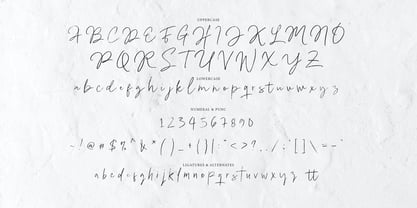 UPPERCASE
ABCDEFGHIJKLMNO
PQRSTUVWXYZ
LOWERCASE
abcdefghijklmnopqrstuvwxyz
NUMERAL & PUNC
1234567890
~!@#$%^&*()_+{}|:"<>?../;'[]\=-`
LIGATURES & ALTERNATES
abcdefghijklmnopqrstuvwxyz tt